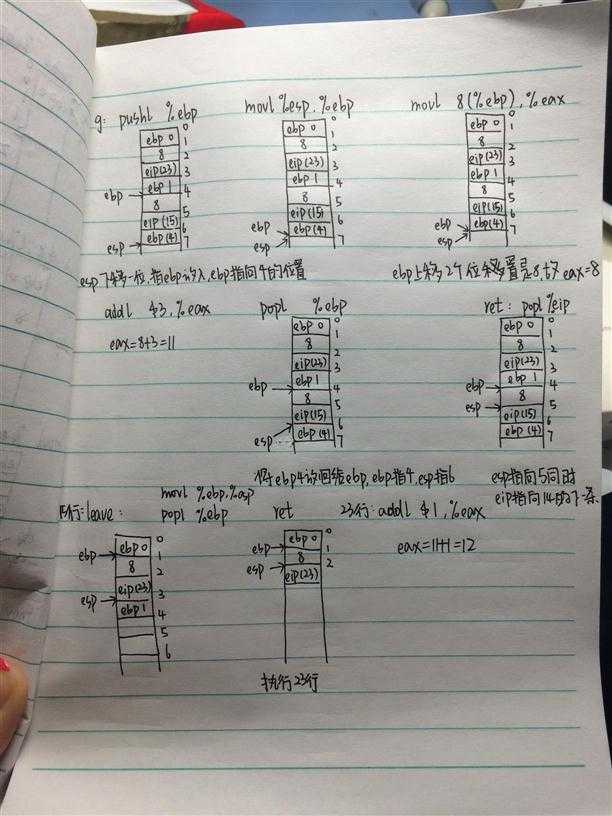 g: pushl %ebp
movl %esp, %ebp
movl 8(%ebp), %eax
0
ebp 0
1
8
2
eip(23)
3
ebp 1
ebp
4
8
5
eip(15)
6
esp
ebp(4)
7
0
ebp 0
1
8
2
eip(23)
3
ebp 1
4
8
5
eip(15)
6
ebp
esp
ebp(4)
7
0
ebp 0
1
8
2
eip(23)
3
ebp 1
4
8
5
eip(15)
6
ebp
esp
ebp(4)
7
esp下移一位,指ebp放入,ebp指向4的位置
ebp上移2个位置是8故eax=8
addl $3, %eax
eax=8+3=11
popl %ebp
0
ebp 0
1
8
2
eip(23)
3
ebp
ebp 1
4
8
5
eip(15)
6
esp
ebp(4)
7
ret: popl %eip
0
ebp 0
1
8
2
eip(23)
3
ebp
ebp 1
4
esp
8
5
eip(15)
6
ebp(4)
7
ebp4放回给ebp,ebp指4,esp指6
esp指向5同时
eip指向14的下一条
行:leave:
movl %ebp,%esp
popl %ebp
0
ebp
ebp 0
1
8
2
eip(23)
3
esp
ebp 1
4
5
6
ret
0
ebp
ebp 0
1
esp
8
2
eip(23)
执行23行
23行: addl $1, %eax
eax=11+1=12